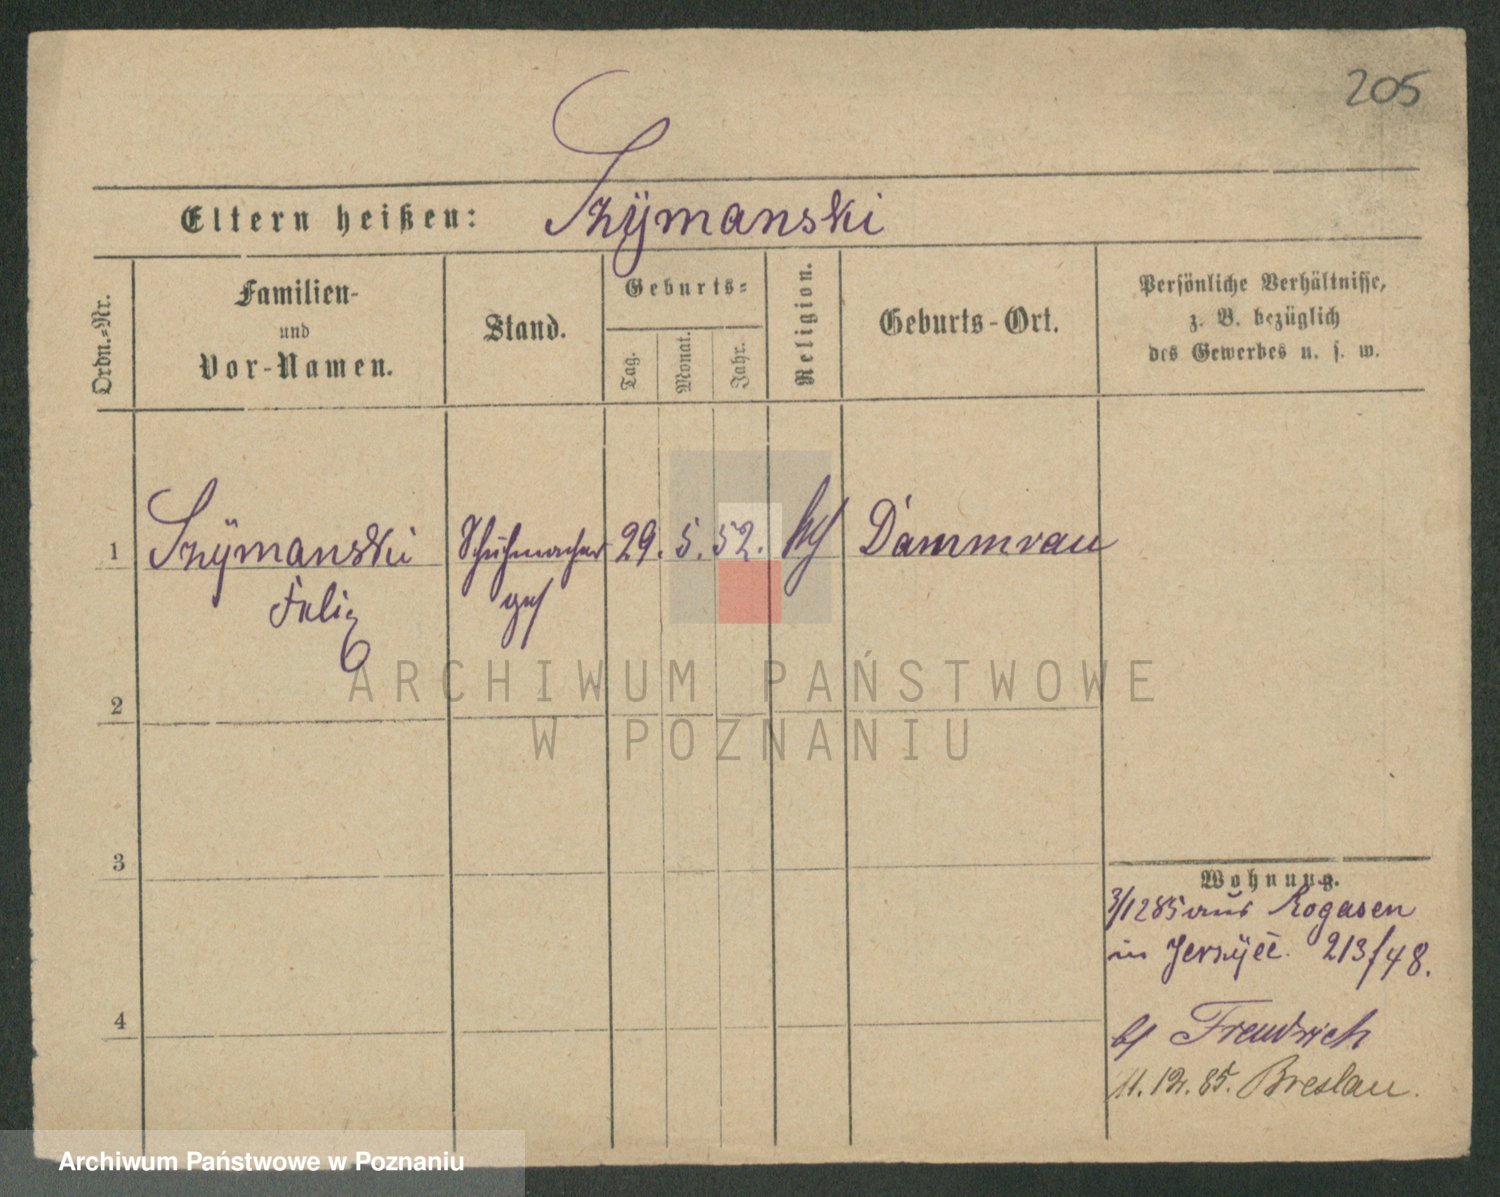 205
Eltern heißen: Szÿmanski
Ordn.-Nr.
Familien-
und
Vor-Namen.
Stand.
Geburts-
Tag.
Monat.
Jahr.
Religion.
Geburts-Ort.
Persönliche Verhältnisse,
z. B. bezüglich
des Gewerbes u. s. w.
1 Szÿmanski Schuhmacher 29. 5. 52. Dammrau
Felix ges
2
ARCHIWUM PAŃSTWOWE
W POZNANIU
3
Wohnung.
3/1285 aus Rogasen
in 213/48.
4
b/
11. 12. 85. Breslau.
Archiwum Państwowe w Poznaniu